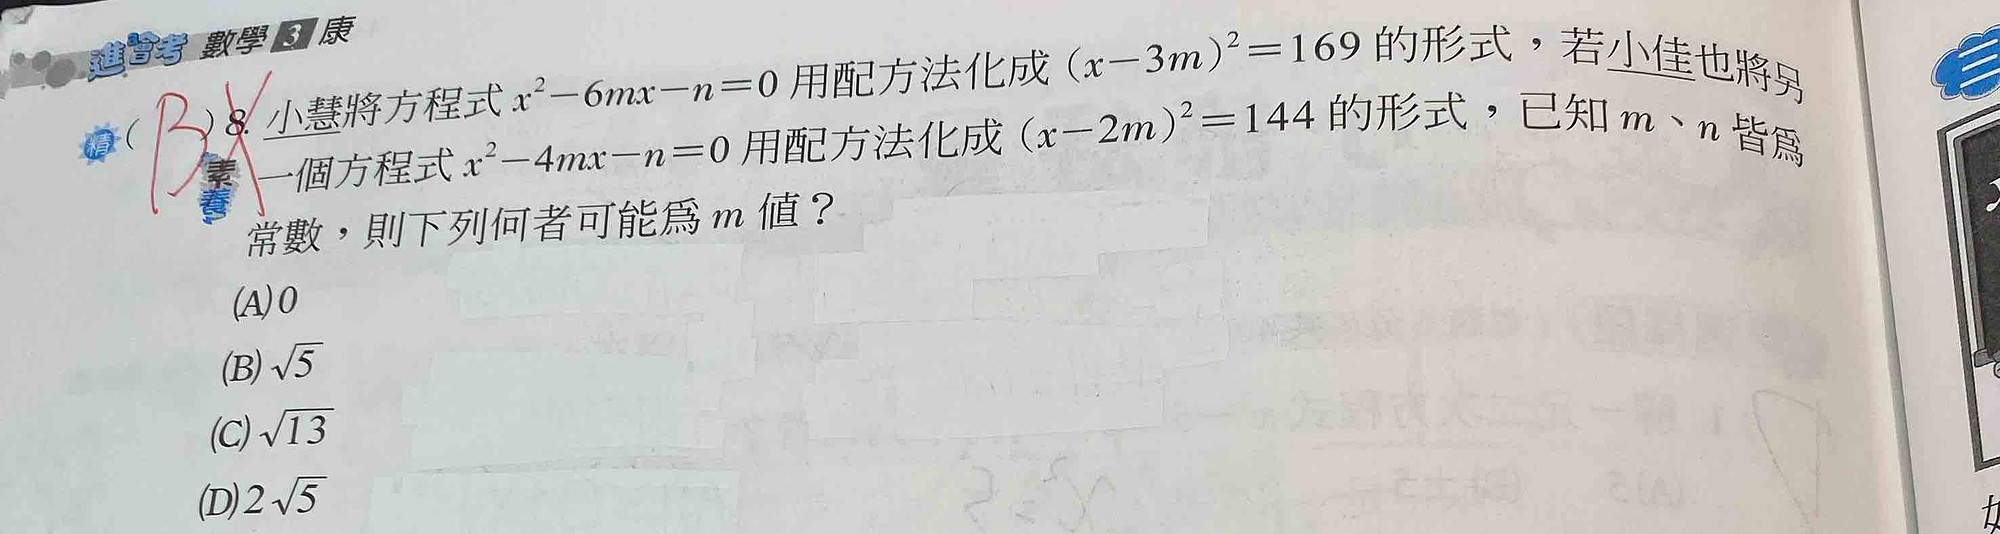 進會考 數學 3 康
精 ( B ) 8. 小慧將方程式 x²−6mx−n=0 用配方法化成 (x−3m)²=169 的形式，若小佳也將另
素養 一個方程式 x²−4mx−n=0 用配方法化成 (x−2m)²=144 的形式，已知 m、n 皆為
常數，則下列何者可能為 m 值？
(A) 0
(B) √5
(C) √13
(D) 2√5